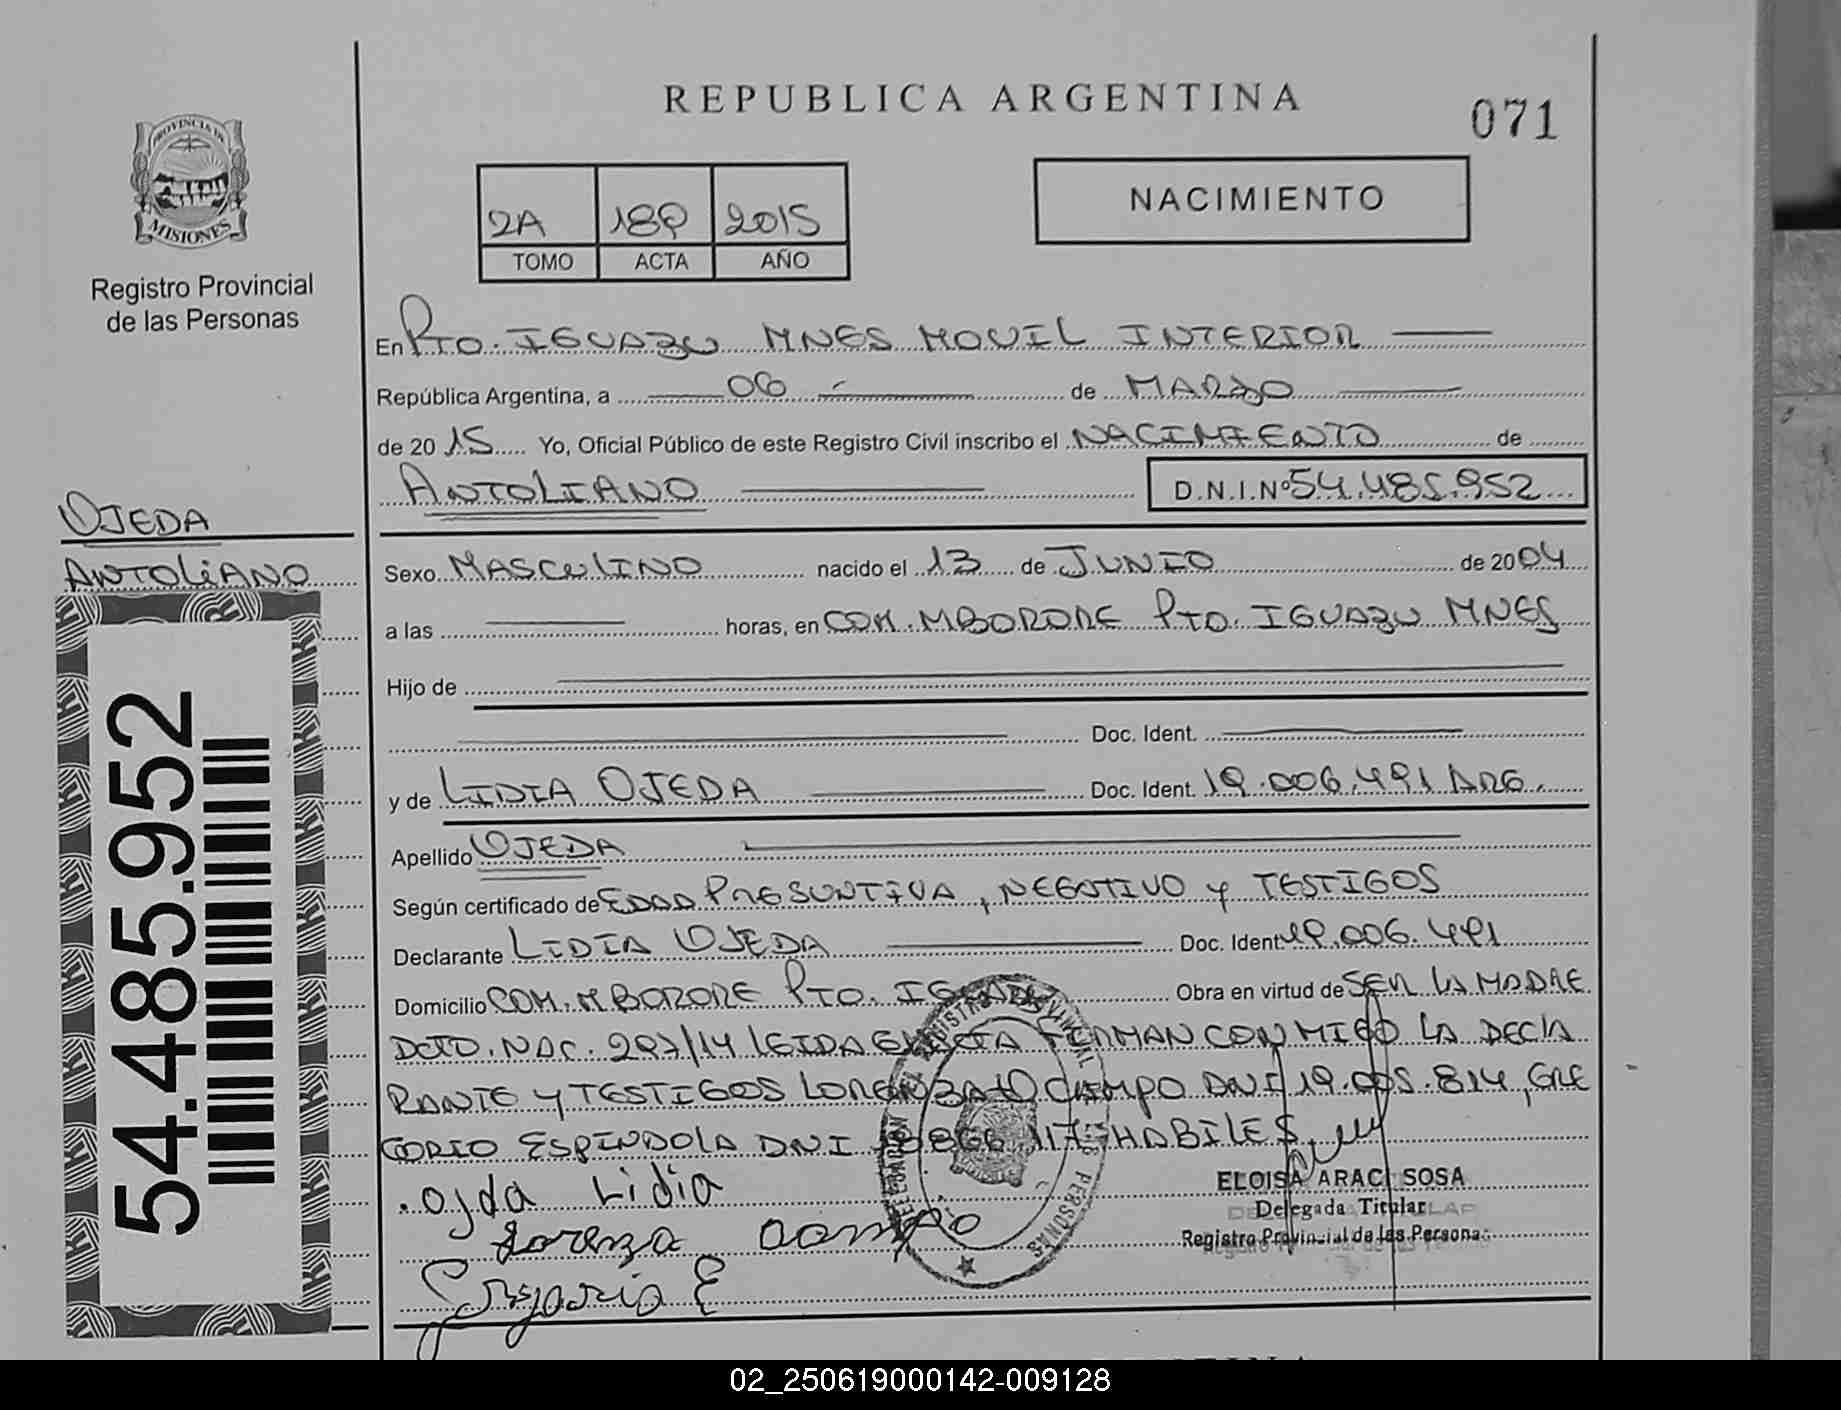 REPUBLICA ARGENTINA
071
PROVINCIA DE
MISIONES
Registro Provincial
de las Personas
NACIMIENTO
2A 189 2015
TOMO ACTA AÑO
En Pto. IGUAZU MNES MOVIL INTERIOR
República Argentina, a 06 de MARZO
de 2015 Yo, Oficial Público de este Registro Civil inscribo el NACIMIENTO de
ANTOLIANO D.N.I.Nº 54.485.952
OJEDA
ANTOLIANO
54.485.952
Sexo MASCULINO nacido el 13 de JUNIO de 2004
a las horas, en COM. MBORORE Pto. IGUAZU MNES
Hijo de
Doc. Ident.
y de LIDIA OJEDA Doc. Ident. 19.006.491 ARG.
Apellido OJEDA
Según certificado de EDAD PRESUNTIVA, NEGATIVO y TESTIGOS
Declarante LIDIA OJEDA Doc. Ident 19.006.491
Domicilio COM. MBORORE Pto. IGUAZU Obra en virtud de SER LA MADRE
DCTO. NAC. 297/14 LEIDA EL ACTA FIRMAN CONMIGO LA DECLA
RANTE Y TESTIGOS LORENZA OCAMPO DNI 19.005.814, GRE
GORIO ESPINDOLA DNI 18.866.117 HABILES.
ojda Lidia
Lorenza Ocampo
Gregorio E
ELOISA ARACI SOSA
Delegada Titular
Registro Provincial de las Personas
02_250619000142-009128